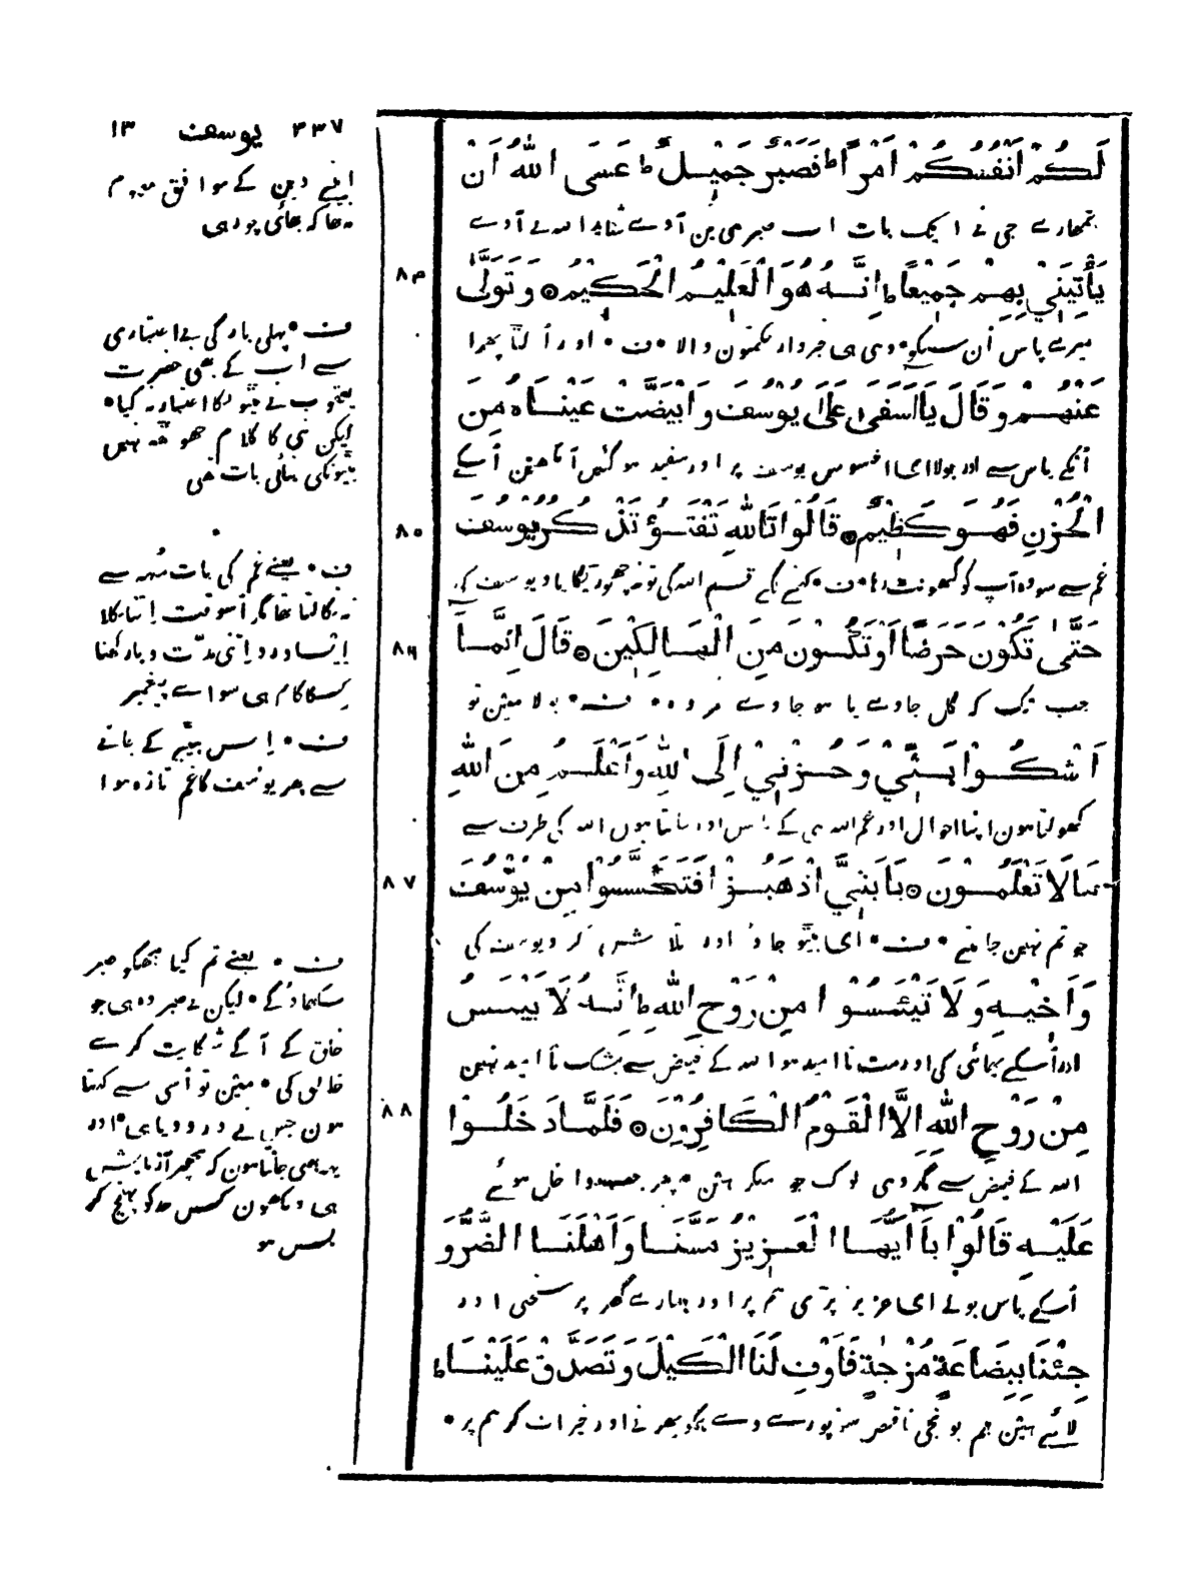 ٣٣٧ يوسف ١٣
لَكُمْ اَنْفُسُكُمْ اَمْرًا ط فَصَبْرٌ جَمِيْلٌ ط عَسَى اللّٰهُ اَنْ
تمھارے جی نے ایک بات اب صبر ہی بن آوے شاید اللہ لے آوے
يَأْتِيَنِيْ بِهِمْ جَمِيْعًا ط اِنَّهُ هُوَ الْعَلِيْمُ الْحَكِيْمُ ه وَتَوَلّٰى
٨٤
میرے پاس اُن سبکو وہی ہی خبردار حکمتون والا • ف • اور اُلٹا پھرا
عَنْهُمْ وَقَالَ يَا اَسَفٰى عَلٰى يُوْسُفَ وَابْيَضَّتْ عَيْنَاهُ مِنَ
اُنکے پاس سے اور بولا ای افسوس یوسف پر اور سفید ہو گئیں آنکھین اُسکے
الْحُزْنِ فَهُوَ كَظِيْمٌ ه قَالُوْا تَاللّٰهِ تَفْتَؤُ تَذْكُرُ يُوْسُفَ
٨٥
غم سے سو وہ آپ کو گھونٹ رہا • ف • کہنے لگے قسم اللہ کی تو نہ چھوڑیگا یاد یوسف کی
حَتّٰى تَكُوْنَ حَرَضًا اَوْ تَكُوْنَ مِنَ الْهَالِكِيْنَ ه قَالَ اِنَّمَا
٨٦
جب تک کہ گل جاوے یا ہو جاوے مردہ • ف • بولا مین تو
اَشْكُوْا بَثِّيْ وَحُزْنِيْ اِلَى اللّٰهِ وَاَعْلَمُ مِنَ اللّٰهِ
کھولتا ہون اپنا احوال اور غم اللہ ہی کے پاس اور جانتا ہون اللہ کی طرف سے
مَالَا تَعْلَمُوْنَ ه يَا بَنِيَّ اذْهَبُوْا فَتَحَسَّسُوْا مِنْ يُوْسُفَ
٨٧
جو تم نہین جانتے • ف • ای بیٹو جاؤ اور تلاش کرو یوسف کی
وَاَخِيْهِ وَلَا تَيْئَسُوْا مِنْ رَوْحِ اللّٰهِ ط اِنَّهُ لَا يَيْئَسُ
اور اُسکے بھائی کی اور مت نا امید ہو اللہ کے فیض سے بیشک نا امید نہین
مِنْ رَوْحِ اللّٰهِ اِلَّا الْقَوْمُ الْكَافِرُوْنَ ه فَلَمَّا دَخَلُوْا
٨٨
اللہ کے فیض سے مگر وہی لوگ جو منکر ہین • پھر جب داخل ہوئے
عَلَيْهِ قَالُوْا يَا اَيُّهَا الْعَزِيْزُ مَسَّنَا وَاَهْلَنَا الضُّرُّ وَ
اُسکے پاس بولے ای عزیز پڑی ہم پر اور ہمارے گھر پر سختی اور
جِئْنَا بِبِضَاعَةٍ مُزْجٰةٍ فَاَوْفِ لَنَا الْكَيْلَ وَتَصَدَّقْ عَلَيْنَا ط
لائے ہین ہم پونجی ناقص سو پورے دے ہمکو بھرنے اور خیرات کر ہم پر •
اپنے دین کے موافق
نہ تھا کہ بھائی چور ہی
ف • پہلی بار کی بے اعتباری
سے اب کے بھی حضرت
یعقوب نے بیٹونکا اعتبار نہ کیا •
لیکن نبی کا کلام جھوٹھ نہین
بیٹونکی بنائی بات تھی
ف • یعنے غم کی بات مُنہ سے
نہ نکالتا تھا مگر اُسوقت اِتنا نکلا
اِیسا درد اِتنی مدّت دبا رکھنا
کسکا کام ہی سوا سے پیغمبر
ف • اِس بیٹے کے جانے
سے پھر یوسف کا غم تازہ ہوا
ف • یعنے تم کیا مجھکو صبر
سکھاؤگے • لیکن بے صبر وہ ہی جو
خلق کے آگے شکایت کرے
خالق کی • مین تو اُسی سے کہتا
ہون جس نے درد دیا ہی • اور
یہ بھی جانتا ہون کہ مجھپر آزمایش
ہی دیکھون کس حد کو پہنچ کر
بس ہو